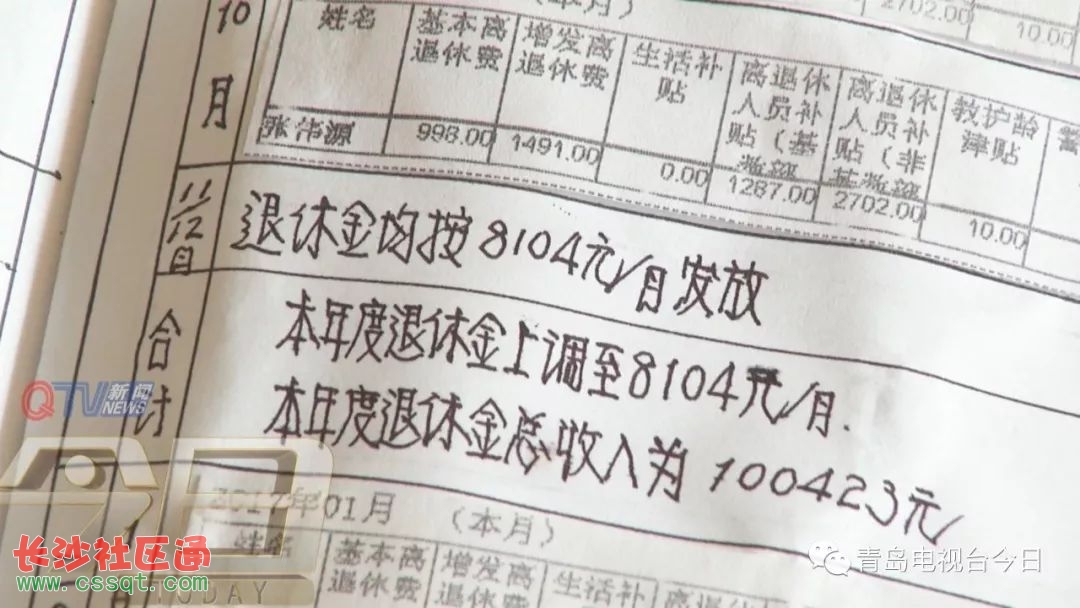 (本月)
2702.00
10.00
10月
姓名 基本离退休费 增发离退休费 生活补贴 离退休人员补贴(基 离退休人员补贴(非 教护龄津贴
张伟源 998.00 1491.00 0.00 1287.00 2702.00 10.00
11/12月 退休金均按8104元/月发放
合计 本年度退休金上调至8104元/月.
本年度退休金总收入为100423元/
QTV新闻
NEWS
今日
TODAY
2017年01月 (本月)
姓名 基本离退休费 增发离退休费 生活补 离退休
长沙社区通
www.cssqt.com
青岛电视台今日